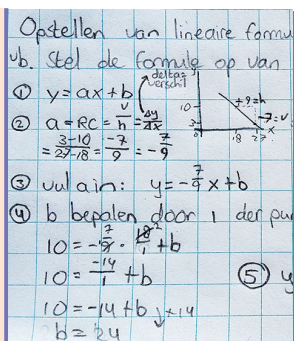 Opstellen van lineaire formu
vb. Stel de formule op van
① y = ax + b
delta = verschil
② a = RC = v/h = Δy/Δx
= 3-10/27-18 = -7/9 = -7/9
10
3
0
18 27 x
+9=h
-7=v
③ vul a in: y = -7/9 x + b
④ b bepalen door 1 der pu
10 = -7/9 · 18/1 + b
10 = -14/1 + b
⑤ y
10 = -14 + b
+14
b = 24